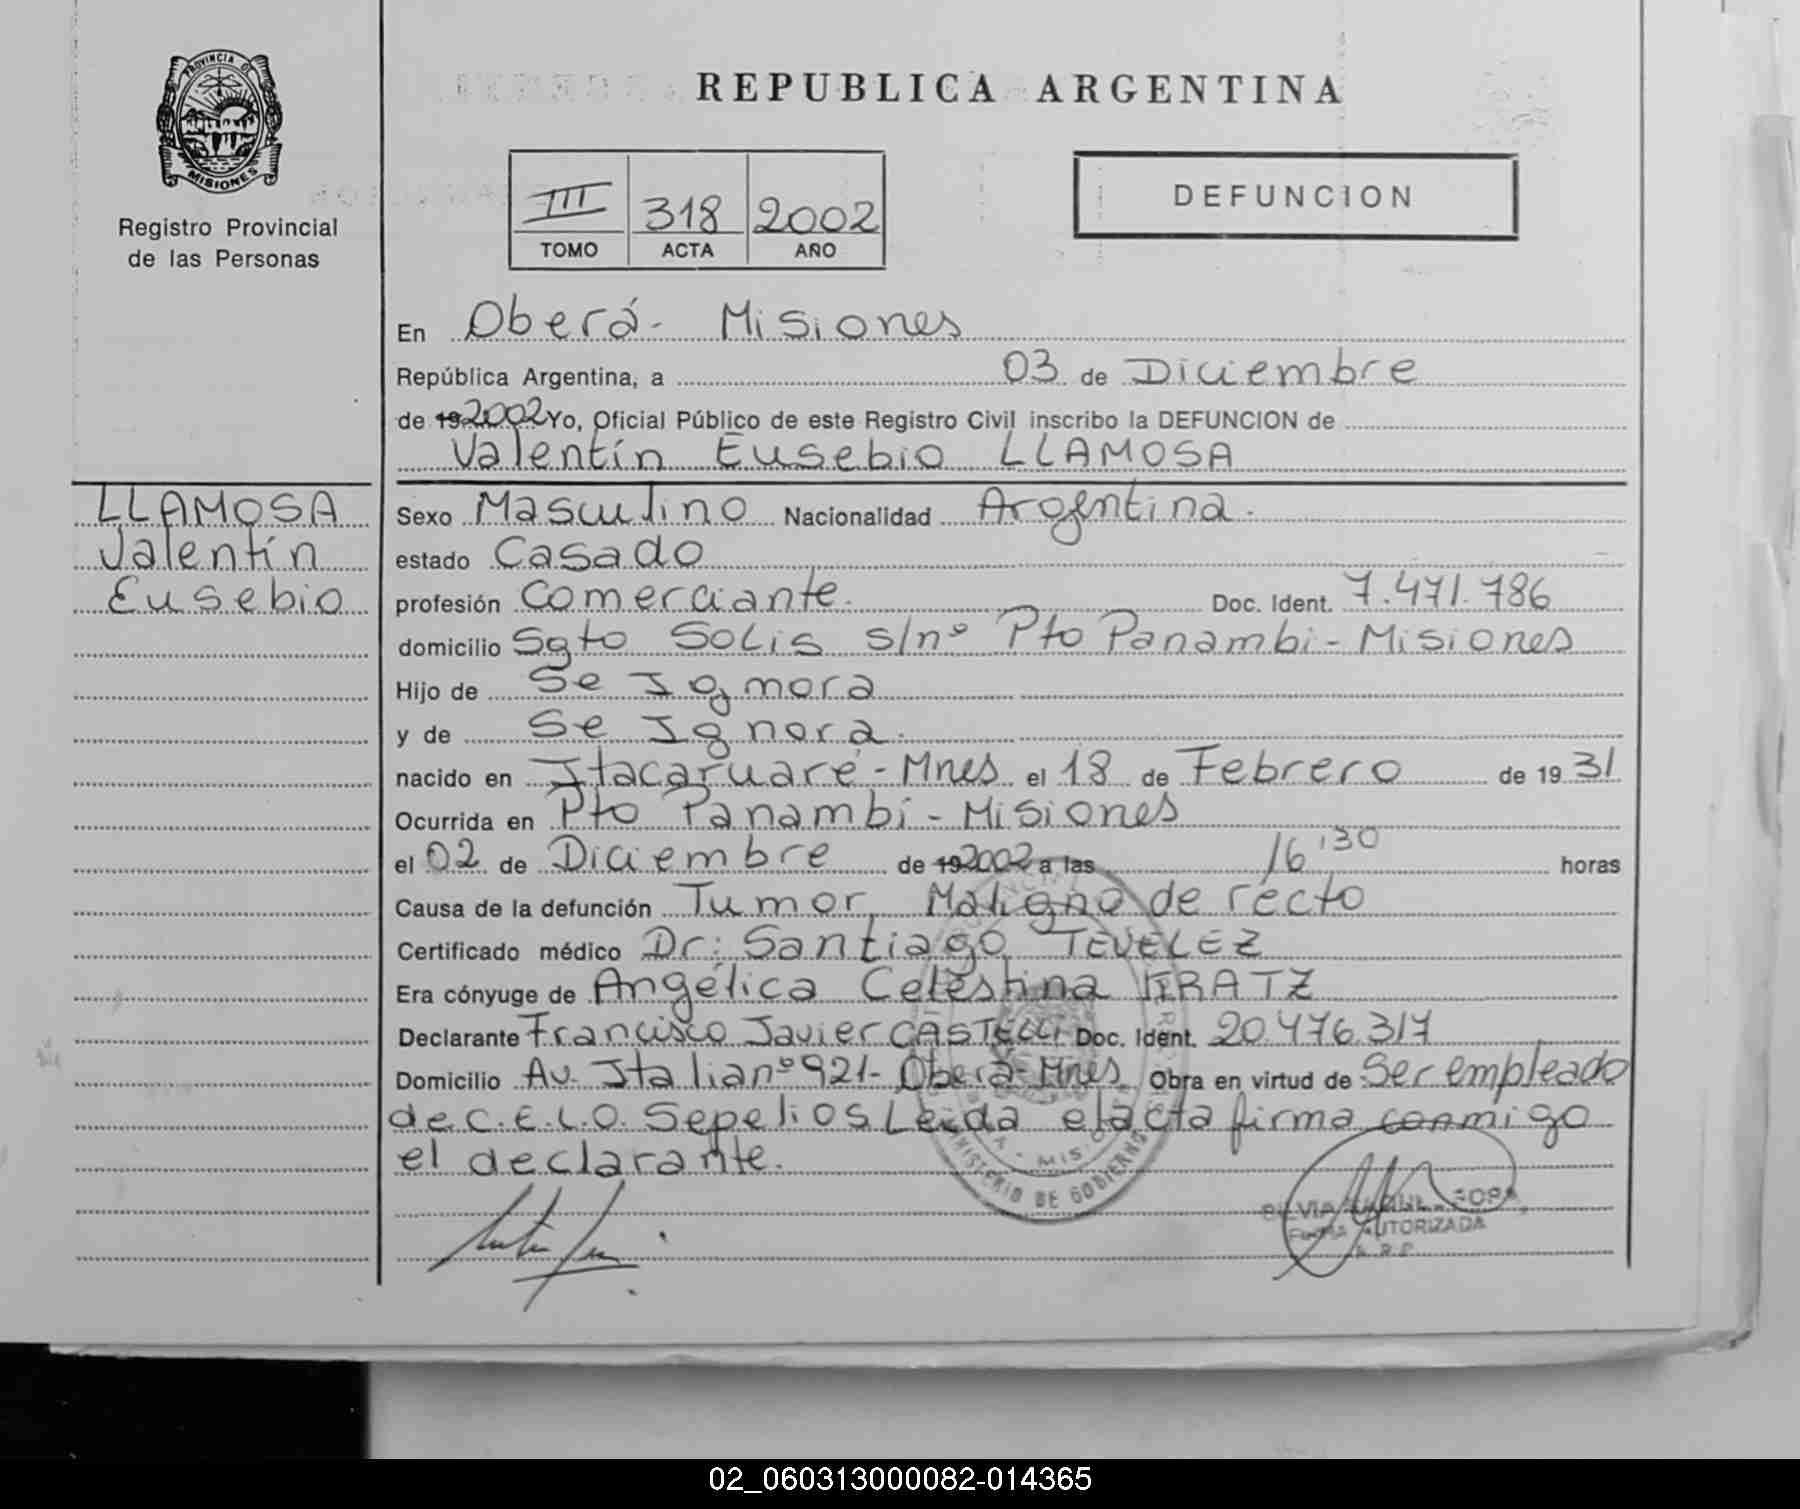 PROVINCIA DE
MISIONES
Registro Provincial
de las Personas
REPUBLICA ARGENTINA
III 318 2002
TOMO ACTA AÑO
DEFUNCION
En Oberá- Misiones
República Argentina, a 03 de Diciembre
de 19 2002 Yo, Oficial Público de este Registro Civil inscribo la DEFUNCION de
Valentín Eusebio LLAMOSA
LLAMOSA
Valentín
Eusebio
Sexo Masculino Nacionalidad Argentina.
estado Casado
profesión Comerciante. Doc. Ident. 7.471.786
domicilio Sgto Solis s/nº Pto Panambi - Misiones
Hijo de Se Ignora
y de Se Ignora.
nacido en Itacaruaré - Mnes el 18 de Febrero de 19 31
Ocurrida en Pto Panambí - Misiones
el 02 de Diciembre de 19 2002 a las 16'30 horas
Causa de la defunción Tumor Maligno de recto
Certificado médico Dr: Santiago TEVELEZ
Era cónyuge de Angélica Celestina KRATZ
Declarante Francisco Javier CASTELLI Doc. Ident. 20.476.317
Domicilio Av. Italia nº 921- Oberá- Mnes Obra en virtud de Ser empleado
de C.E.L.O. Sepelios Leída el acta firma conmigo
el declarante.
MINISTERIO DE GOBIERNO
SILVIA
FIRMA AUTORIZADA
02_060313000082-014365